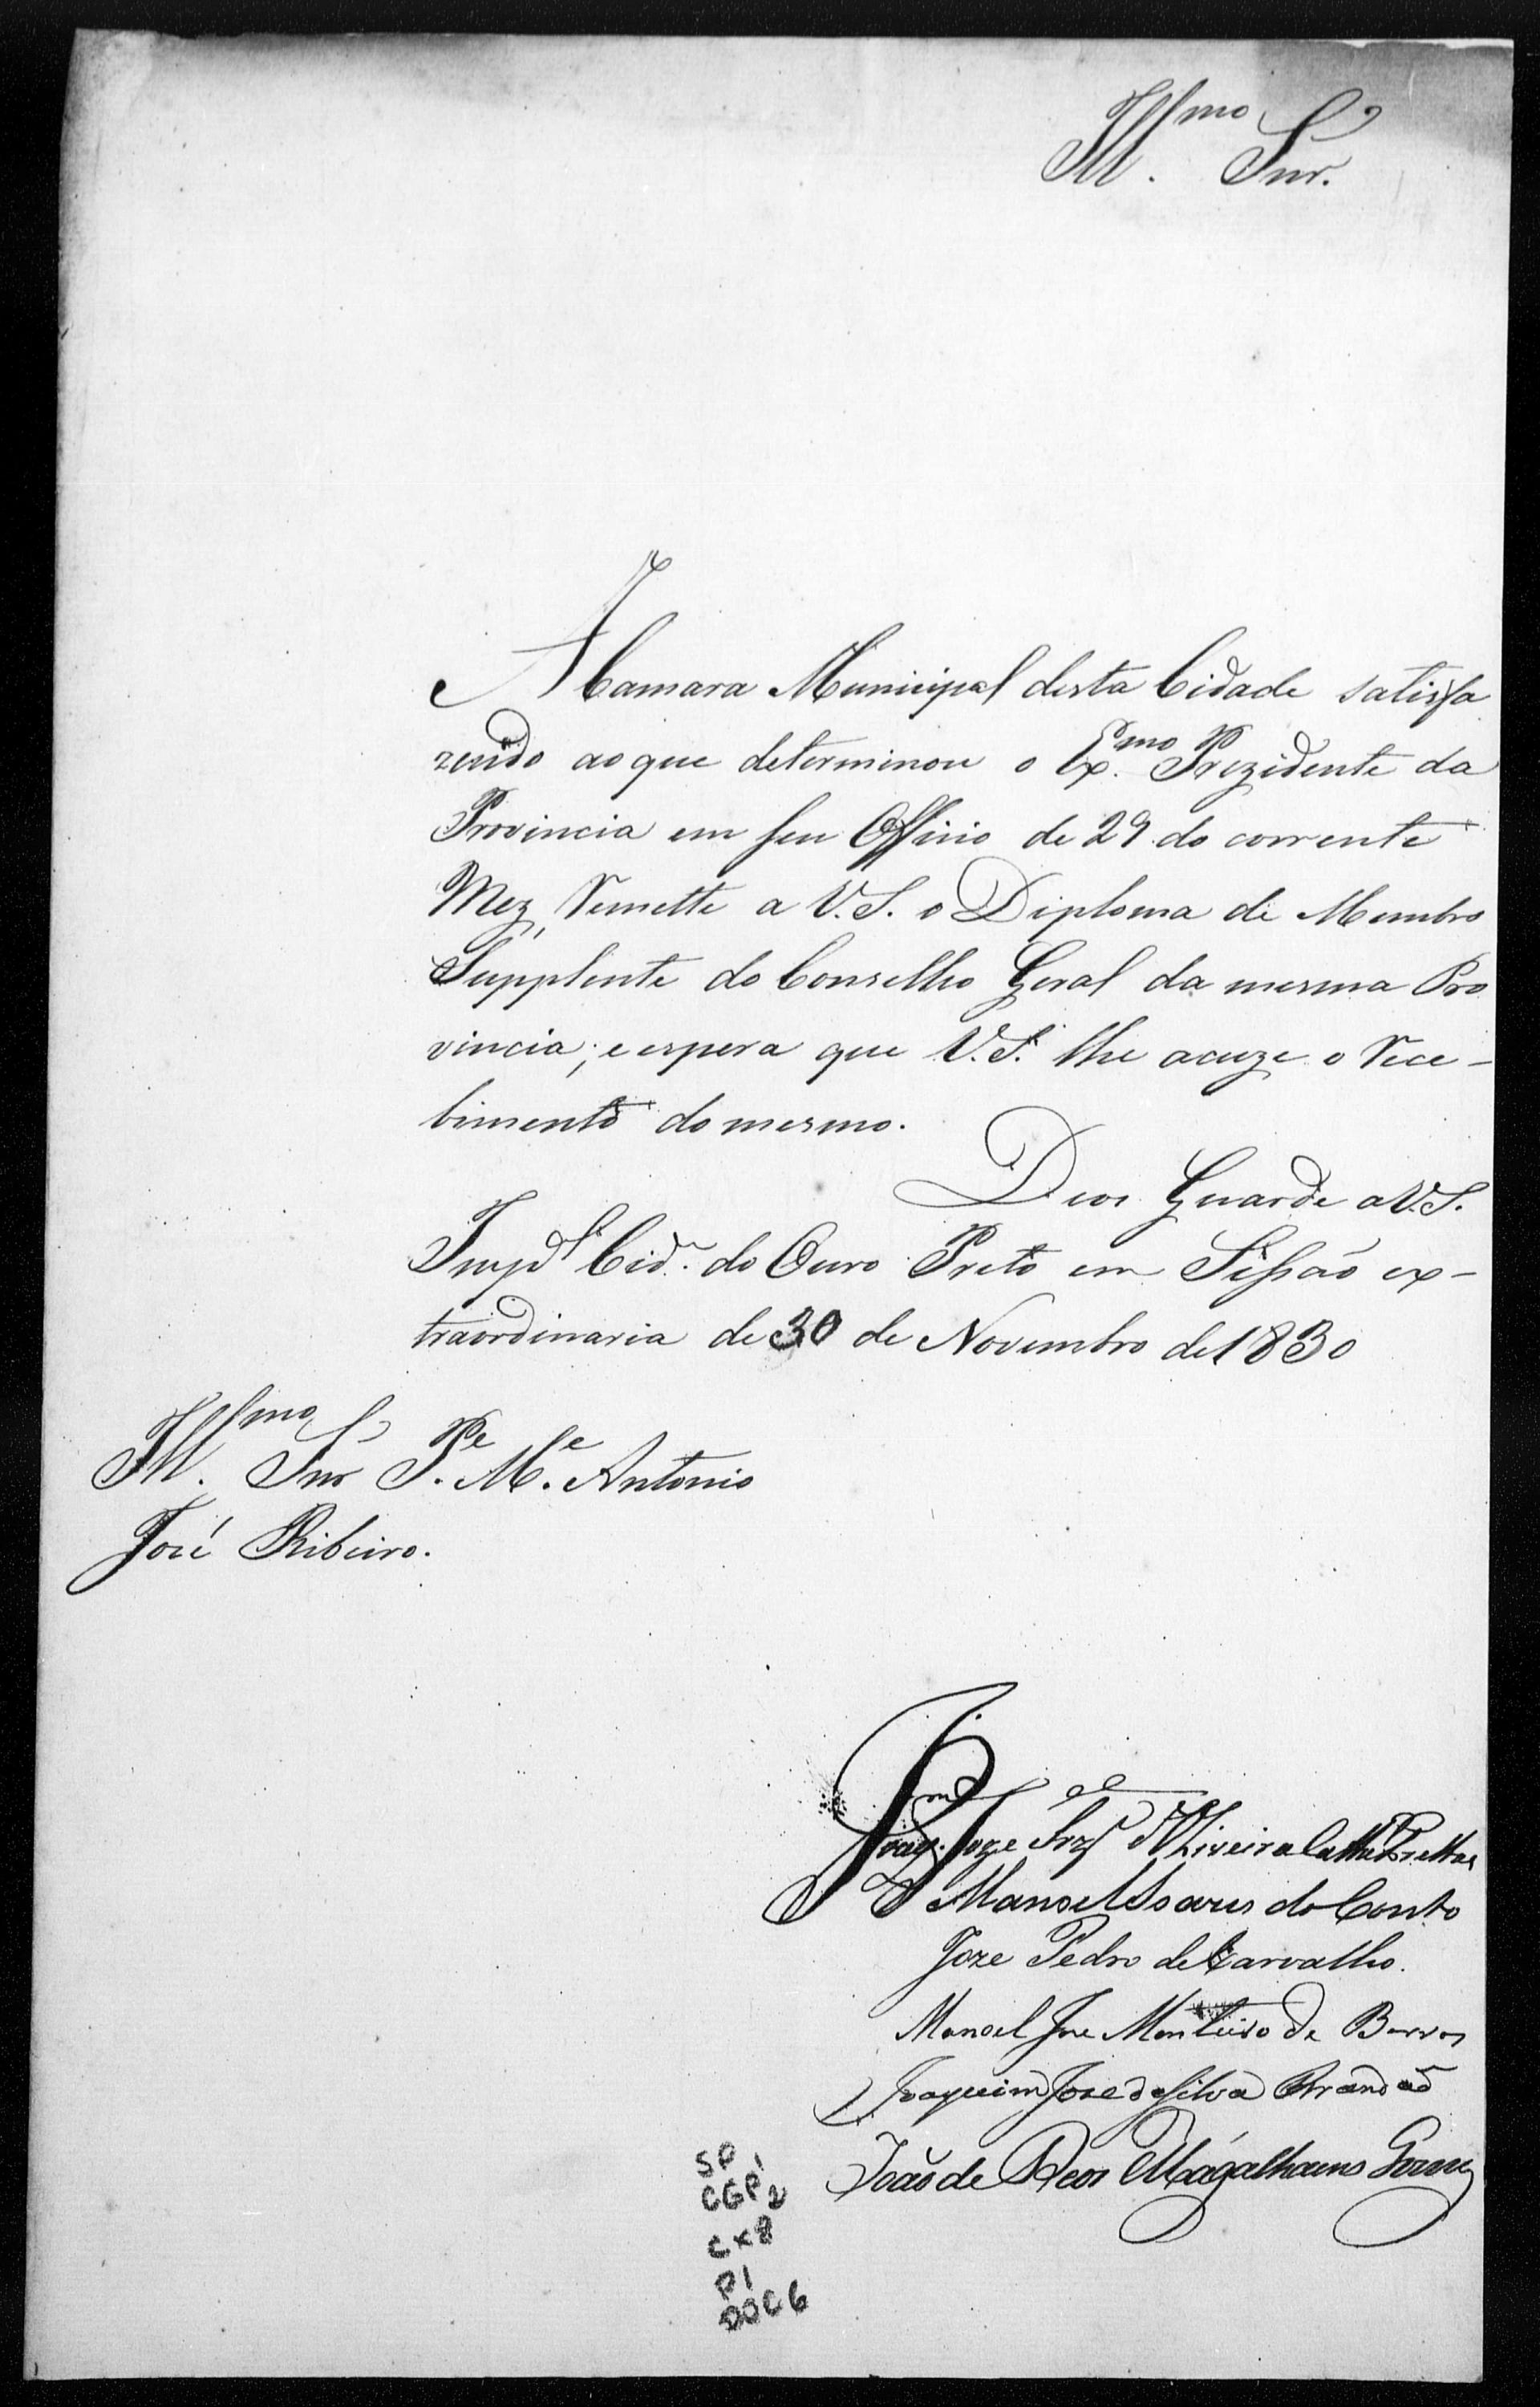 Ill.mo Snr.
A Camara Municipal desta Cidade satisfa
zendo ao que determinou o Ex.mo Prezidente da
Provincia em seu Officio de 29 do corrente
Mez, remette a V.S. o Diploma de Membro
Supplente do Conselho Geral da mesma Pro
vincia; e espera que V.S. lhe acuze o rece-
bimento do mesmo.
Deos Guarde a V.S.
Imp.al Cid.e do Ouro Preto em Sessão ex-
traordinaria de 30 de Novembro de 1830
Ill.mo Snr P.e M.e Antonio
José Ribeiro.
Joaq.m Joze d'Oliveira Pretta
Manoel Soares do Couto
Joze Pedro de Carvalho.
Manoel Jose Monteiro de Barros
Joaquim Jose da Silva Brandaõ
Joaõ de Deos Magalhaens Gomes
SP
CGP 1/2
CX8
P1
DOC 6